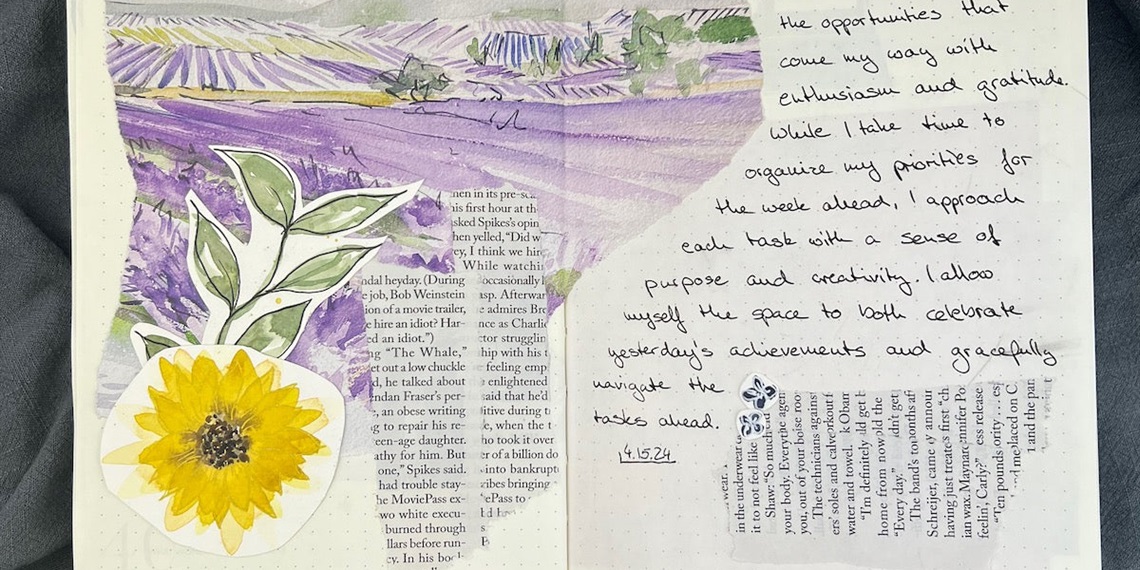 the opportunities that
come my way with
enthusiasm and gratitude.
While I take time to
organize my priorities for
the week ahead, I approach
each task with a sense of
purpose and creativity. I allow
myself the space to both celebrate
yesterday's achievements and gracefully
navigate the
tasks ahead.
4.15.24
men in its pre-sc
his first hour at th
asked Spikes's opin
hen yelled, "Did w
ey, I think we hir
While watchin
occasionally l
asp. Afterwar
e admires Bre
nce as Charlie
ctor strugglin
hip with his t
feeling emp
e enlightened
said that he'd
itive during t
e, when the t
ho took it over
er of a billion do
into bankrupt
ribes bringing
ePass to
ndal heyday. (During
e job, Bob Weinstein
ion of a movie trailer,
e hire an idiot? Har-
ed an idiot.")
ng "The Whale,"
et out a low chuckle
d, he talked about
ndan Fraser's per-
, an obese writing
g to repair his re-
een-age daughter.
athy for him. But
one," Spikes said.
had trouble stay-
he MoviePass ex-
wo white execu-
burned through
llars before run-
cy. In his boo
wear.
in the underwear
it to not feel like
Shaw: "So much
your body. Everythe agen
you, out of your boise roo
The technicians against
ers' soles and calveworkout
water and towel.
"I'm definitely
home from now
"Every day."
The band's to
Schreijer, came
having just treate
ian wax. Maynar
feelin', Carly?"
"Ten pounds
old get
old the
dn't get
onths af
y annour
s first "ch
nnifer Po
ess release
ority . . . es
laced on C
and the par